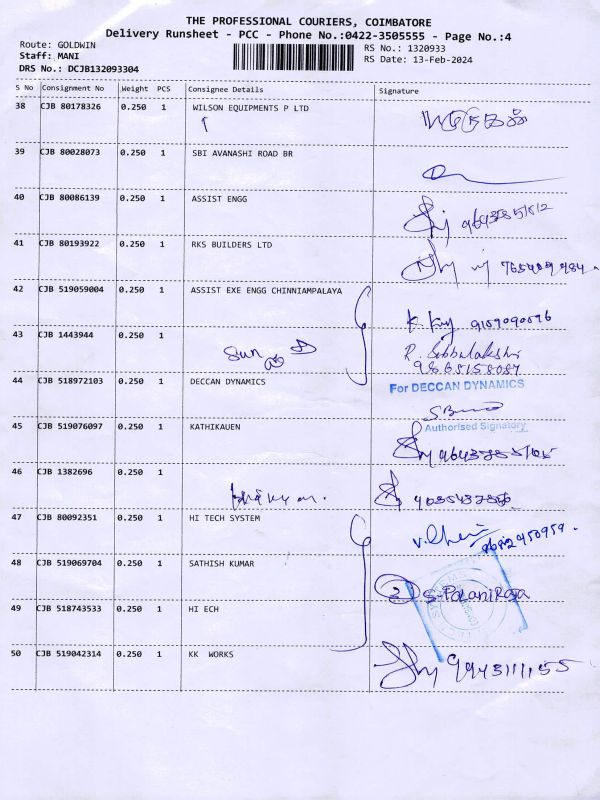 THE PROFESSIONAL COURIERS, COIMBATORE
Delivery Runsheet - PCC - Phone No.:0422-3505555 - Page No.:4
Route: GOLDWIN
Staff: MANI
DRS No.: DCJB132093304
RS No.: 1320933
RS Date: 13-Feb-2024
S No Consignment No Weight PCS Consignee Details Signature
38 CJB 80178326 0.250 1 WILSON EQUIPMENTS P LTD
39 CJB 80028073 0.250 1 SBI AVANASHI ROAD BR
40 CJB 80086139 0.250 1 ASSIST ENGG
41 CJB 80193922 0.250 1 RKS BUILDERS LTD
42 CJB 519059004 0.250 1 ASSIST EXE ENGG CHINNIAMPALAYA
9159090596
43 CJB 1443944 0.250 1
R. Subbulakshmi
9865158087
44 CJB 518972103 0.250 1 DECCAN DYNAMICS
For DECCAN DYNAMICS
Authorised Signatory
45 CJB 519076097 0.250 1 KATHIKAUEN
46 CJB 1382696 0.250 1
47 CJB 80092351 0.250 1 HI TECH SYSTEM
48 CJB 519069704 0.250 1 SATHISH KUMAR
2 S-PalaniRaja
49 CJB 518743533 0.250 1 HI ECH
50 CJB 519042314 0.250 1 KK WORKS
9943111155